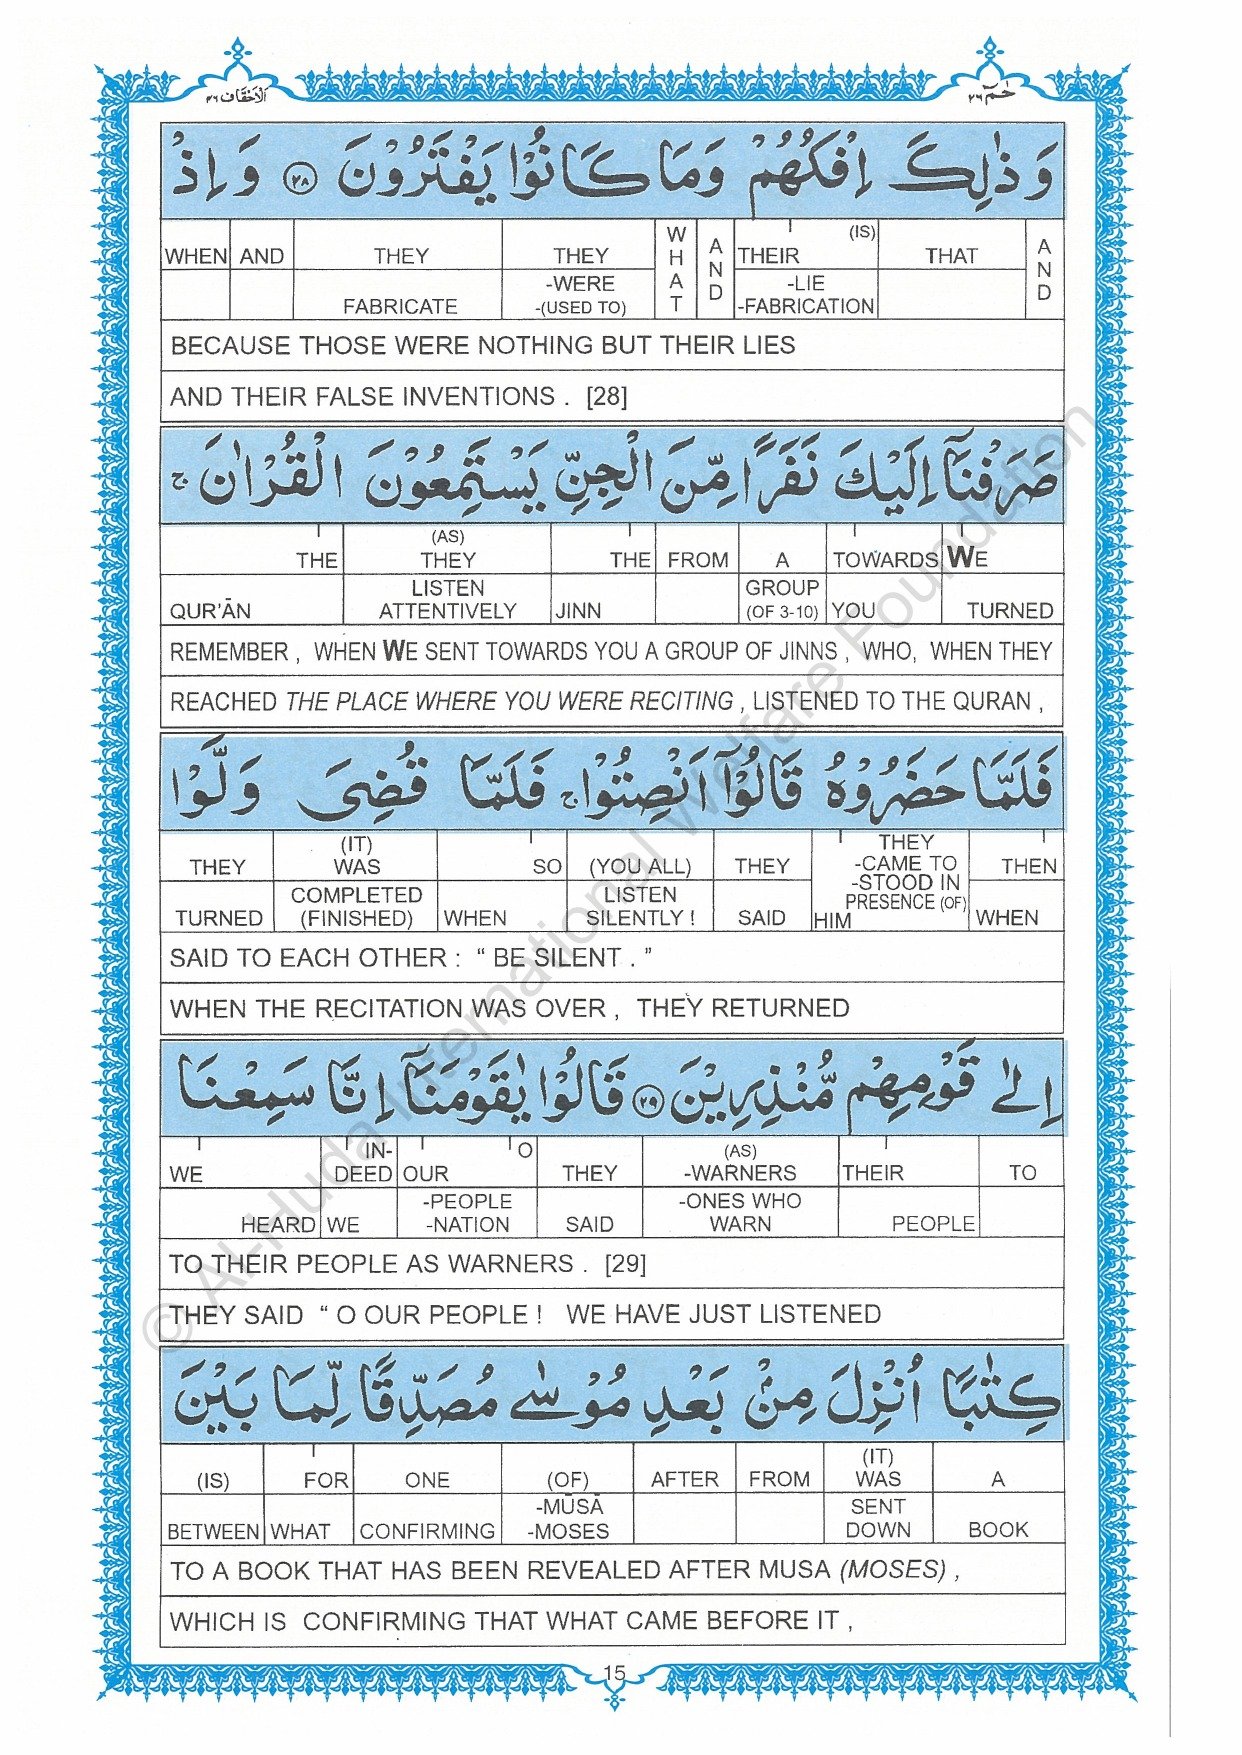 الاحقاف ٤٦ حٰمٓ ٢٦
وَذٰلِكَ اِفْكُهُمْ وَمَا كَانُوْا يَفْتَرُوْنَ ﴿٢٨﴾ وَ اِذْ
WHEN AND THEY THEY WHAT AND THEIR (IS) THAT AND
FABRICATE -WERE -(USED TO) -LIE -FABRICATION
BECAUSE THOSE WERE NOTHING BUT THEIR LIES
AND THEIR FALSE INVENTIONS . [28]
صَرَفْنَآ اِلَيْكَ نَفَرًا مِّنَ الْجِنِّ يَسْتَمِعُوْنَ الْقُرْاٰنَ ۚ
THE (AS) THEY THE FROM A TOWARDS WE
QUR'ĀN LISTEN ATTENTIVELY JINN GROUP (OF 3-10) YOU TURNED
REMEMBER , WHEN WE SENT TOWARDS YOU A GROUP OF JINNS , WHO, WHEN THEY
REACHED THE PLACE WHERE YOU WERE RECITING , LISTENED TO THE QURAN ,
فَلَمَّا حَضَرُوْهُ قَالُوْٓا اَنْصِتُوْا ۚ فَلَمَّا قُضِىَ وَلَّوْا
THEY (IT) WAS SO (YOU ALL) THEY THEY -CAME TO -STOOD IN PRESENCE (OF) THEN
TURNED COMPLETED (FINISHED) WHEN LISTEN SILENTLY ! SAID HIM WHEN
SAID TO EACH OTHER : “ BE SILENT . ”
WHEN THE RECITATION WAS OVER , THEY RETURNED
اِلٰى قَوْمِهِمْ مُّنْذِرِيْنَ ﴿٢٩﴾ قَالُوْا يٰقَوْمَنَآ اِنَّا سَمِعْنَا
WE IN-DEED OUR O THEY (AS) -WARNERS THEIR TO
HEARD WE -PEOPLE -NATION SAID -ONES WHO WARN PEOPLE
TO THEIR PEOPLE AS WARNERS . [29]
THEY SAID “ O OUR PEOPLE ! WE HAVE JUST LISTENED
كِتٰبًا اُنْزِلَ مِنْۢ بَعْدِ مُوْسٰى مُصَدِّقًا لِّمَا بَيْنَ
(IS) FOR ONE (OF) AFTER FROM (IT) WAS A
BETWEEN WHAT CONFIRMING -MŪSĀ -MOSES SENT DOWN BOOK
TO A BOOK THAT HAS BEEN REVEALED AFTER MUSA (MOSES) ,
WHICH IS CONFIRMING THAT WHAT CAME BEFORE IT ,
15
© Al-Huda International Welfare Foundation